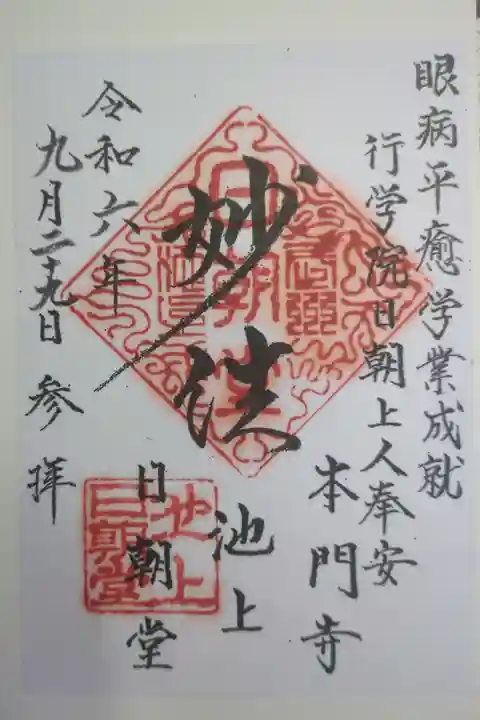 眼病平癒学業成就
行学院日朝上人奉安
本門寺
池上
妙法
日朝堂
令和六年
九月二十九日 参拝
日朝堂
池上
日朝堂